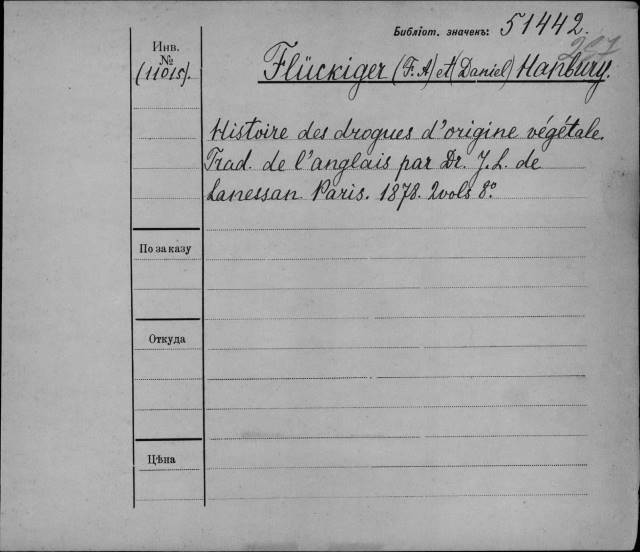 Библіот. значекъ: 51442.
Инв.
№
(11015).
Flückiger (F. A) et (Daniel) Hanbury.
Histoire des drogues d'origine végétale.
Trad. de l'anglais par Dr. J. L. de
Lanessan Paris. 1878. 2vols 8°.
По заказу
Откуда
Цѣна